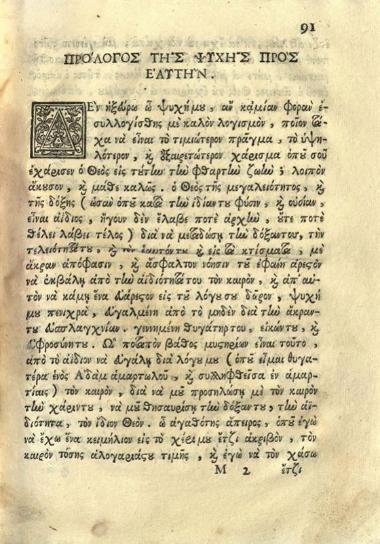 91
ΠΡΟ'ΛΟΓΟΣ ΤΗ͂Σ ΨΥΧΗ͂Σ ΠΡΟ'Σ
ΕΑΥΤΗ'Ν.
ΔΕΝ ἠξεύρω ὦ ψυχήμου, ἂν καμίαν φορὰν ἐ-
συλλογίσθης μὲ καλὸν λογισμὸν, ποῖον τά-
χα νὰ εἶναι τὸ τιμιώτερον πράγμα, τὸ ὑψη-
λότερον, ϗ ἐξαιρετώτερον χάρισμα ὁποῦ σοῦ
ἐχάρισεν ὁ Θεὸς εἰς τούτην τὴν φθαρτὴν ζωήν; λοιπὸν
ἄκουσον, ϗ μάθε καλῶς. ὁ Θεὸς τῆς μεγαλειότητος, ϗ
τῆς δόξης (ὡσὰν ὁποῦ κατὰ τὴν ἰδίαντου φύσιν, ϗ οὐσίαν,
εἶναι ἀΐδιος, ἤγουν δὲν ἔλαβε ποτὲ ἀρχὴν, οὔτε ποτὲ
θέλει λάβει τέλος) διὰ νὰ μεταδώσῃ τὴν δόξαντου, τὴν
τελειότητα, ϗ τὸν ἑαυτόντου ϗ εἰς τὰ κτίσματα, μὲ
ἄκραν ἀπόφασιν, ϗ ἄσφαλτον νόησιν τοῦ ἐφάνη ἀρεστὸν
νὰ ἐκβάλῃ ἀπὸ τὴν ἀϊδιότητατου τὸν καιρὸν, ϗ ἀπ' αὐ-
τὸν νὰ κάμῃ ἕνα εὐάρεστον εἰς τοῦ λόγουσου δῶρον, ψυχή
μου πενιχρὰ, εὐγαλμένη ἀπὸ τὸ μηδὲν διὰ τὴν ἄκραν-
του εὐσπλαγχνίαν. γιννημένη θυγάτηρτου, εἰκώντου, ϗ
εὐφροσύντου. Ὢ ποταπὸν βάθος μυστηρίων εἶναι τοῦτο,
ἀπὸ τὸ ἀΐδιον νὰ εὐγάλῃ διὰ λόγουμου (ὁποῦ εἶμαι θυγα-
τέρα ἑνὸς Ἀδὰμ ἁμαρτωλοῦ, ϗ συλληφθεῖσα ἐν ἁμαρ-
τίαις) τὸν καιρὸν, διὰ νὰ μοῦ προσηλώσῃ μὲ τὸν καιρὸν
τὴν χάριντου, νὰ μοῦ θησαυρίσῃ τὴν δόξαντου, τὴν ἀϊ-
διότητα, τὸν ἴδιον Θεόν. ὢ ἀγαθότης ἄπειρος, ὁποῦ ἐγὼ
νὰ ἔχω ἕνα κειμήλιον εἰς τὸ χέριμου ἔτζι ἀκριβὸν, τὸν
καιρὸν τόσης ἀλογαριάστου τιμῆς, ϗ ἐγὼ νὰ τὸν χάσω
Μ 2 ἔτζι